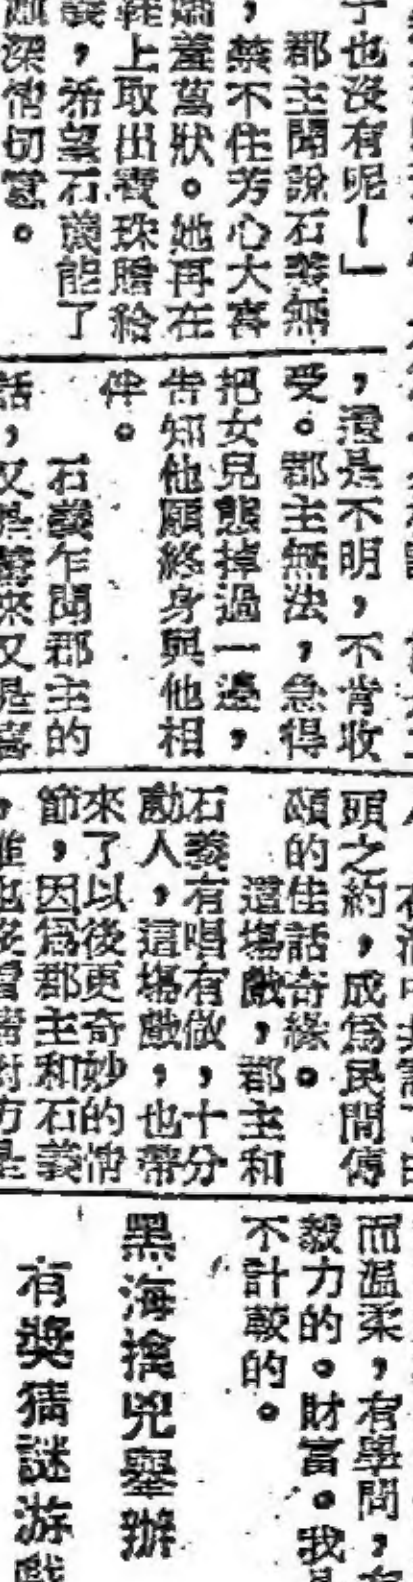 子也沒有呢！」
郡主聞說石義無
，禁不住芳心大喜
嬌羞萬狀。她再在
鞋上取出寶珠贈給
義，希望石義能了
深情切意。
，還是不明，不肯收
受。郡主無法，急得
把女兒態掉過一邊，
告知他願終身與他相
伴。
石義乍聞郡主的
話，又是驚來又是喜
頭之約，成爲民間傳
頌的佳話奇緣。
這塲戲，郡主和
石義有唱有做，十分
動人，這塲戲，也帶
來了以後更奇妙的情
節，因爲郡主和石義
而溫柔，有學問，
毅力的。財富。我
不計較的。
黑海擒兇舉辦
有獎猜謎游戲